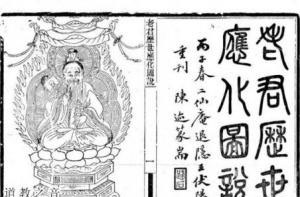 老君歷世
應化圖說
丙子春二仙庵退隱
重刊
老君歷世應化圖說
一
道教之音